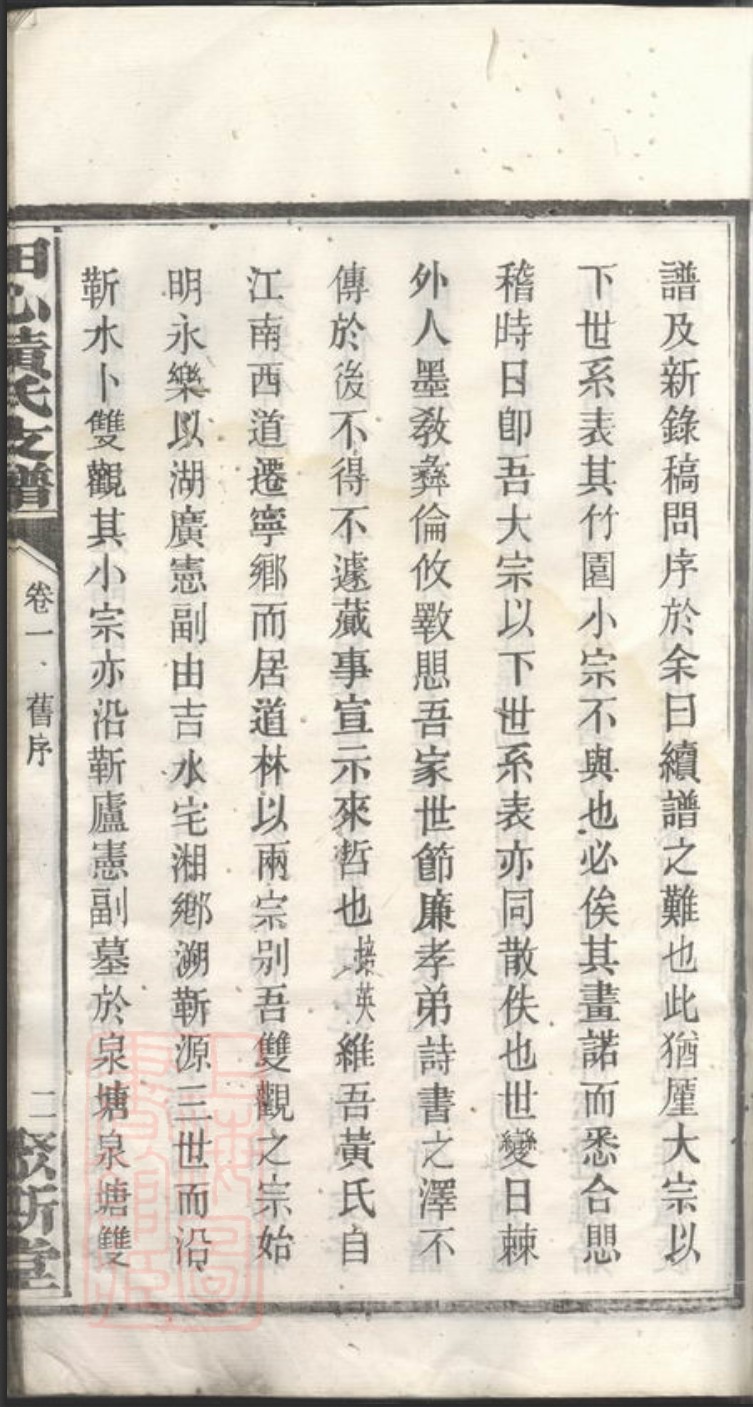 譜及新錄稿問序於余曰續譜之難也此猶厪大宗以
下世系表其竹園小宗不與也必俟其畫諾而悉合愳
稽時日卽吾大宗以下世系表亦同散佚也世變日棘
外人墨敎彝倫攸斁愳吾家世節廉孝弟詩書之澤不
傳於後不得不遽蕆事宣示來哲也培英維吾黃氏自
江南西道遷寧鄉而居道林以兩宗别吾雙觀之宗始
明永樂以湖廣憲副由吉水宅湘鄉溯靳源三世而沿
靳水卜雙觀其小宗亦沿靳廬憲副墓於泉塘泉塘雙
田心黃氏支譜
卷一、舊序
二
敦斯堂